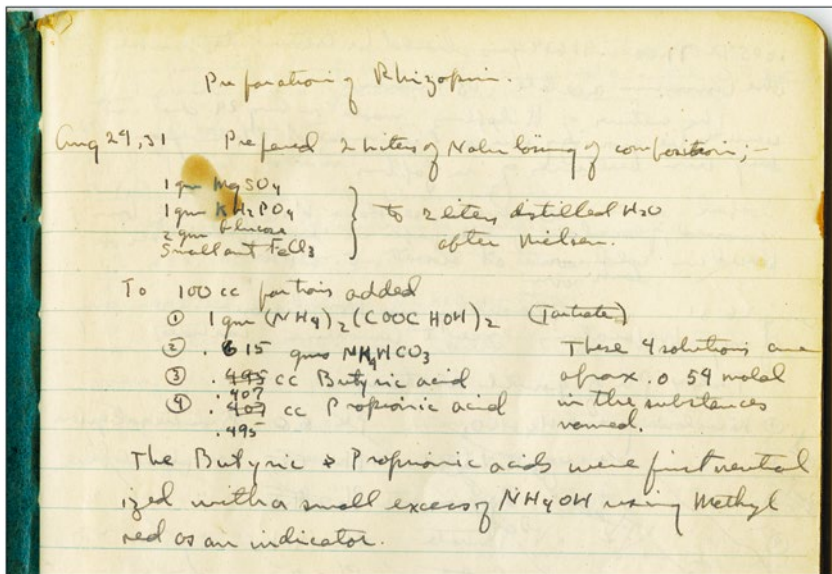 Preparation of Rhizopin.
Aug 29, 31 Prepared 2 Liters of Nährlösung of composition;-
1 gm MgSO4
1 gm KH2PO4
2 gm Glucose
Small amt FeCl3
to 2 liters distilled H2O
after Nielsen.
To 100 cc portions added
① 1 gm (NH4)2(COOCHOH)2 (Tartrate)
② .615 gms NH4HCO3
③ .495 cc Butyric acid
.407
④ .407 cc Propionic acid
.495
These 4 solutions are
aprox. .054 molal
in the substances
named.
The Butyric & Proprionic acids were first neutral
ized with a small excess of NH4OH using Methyl
red as an indicator.